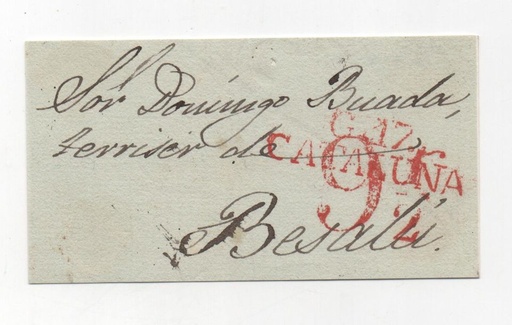 Sor Domingo Buada,
terriser de
G. 17.
CATALUÑA
9
Besalú.